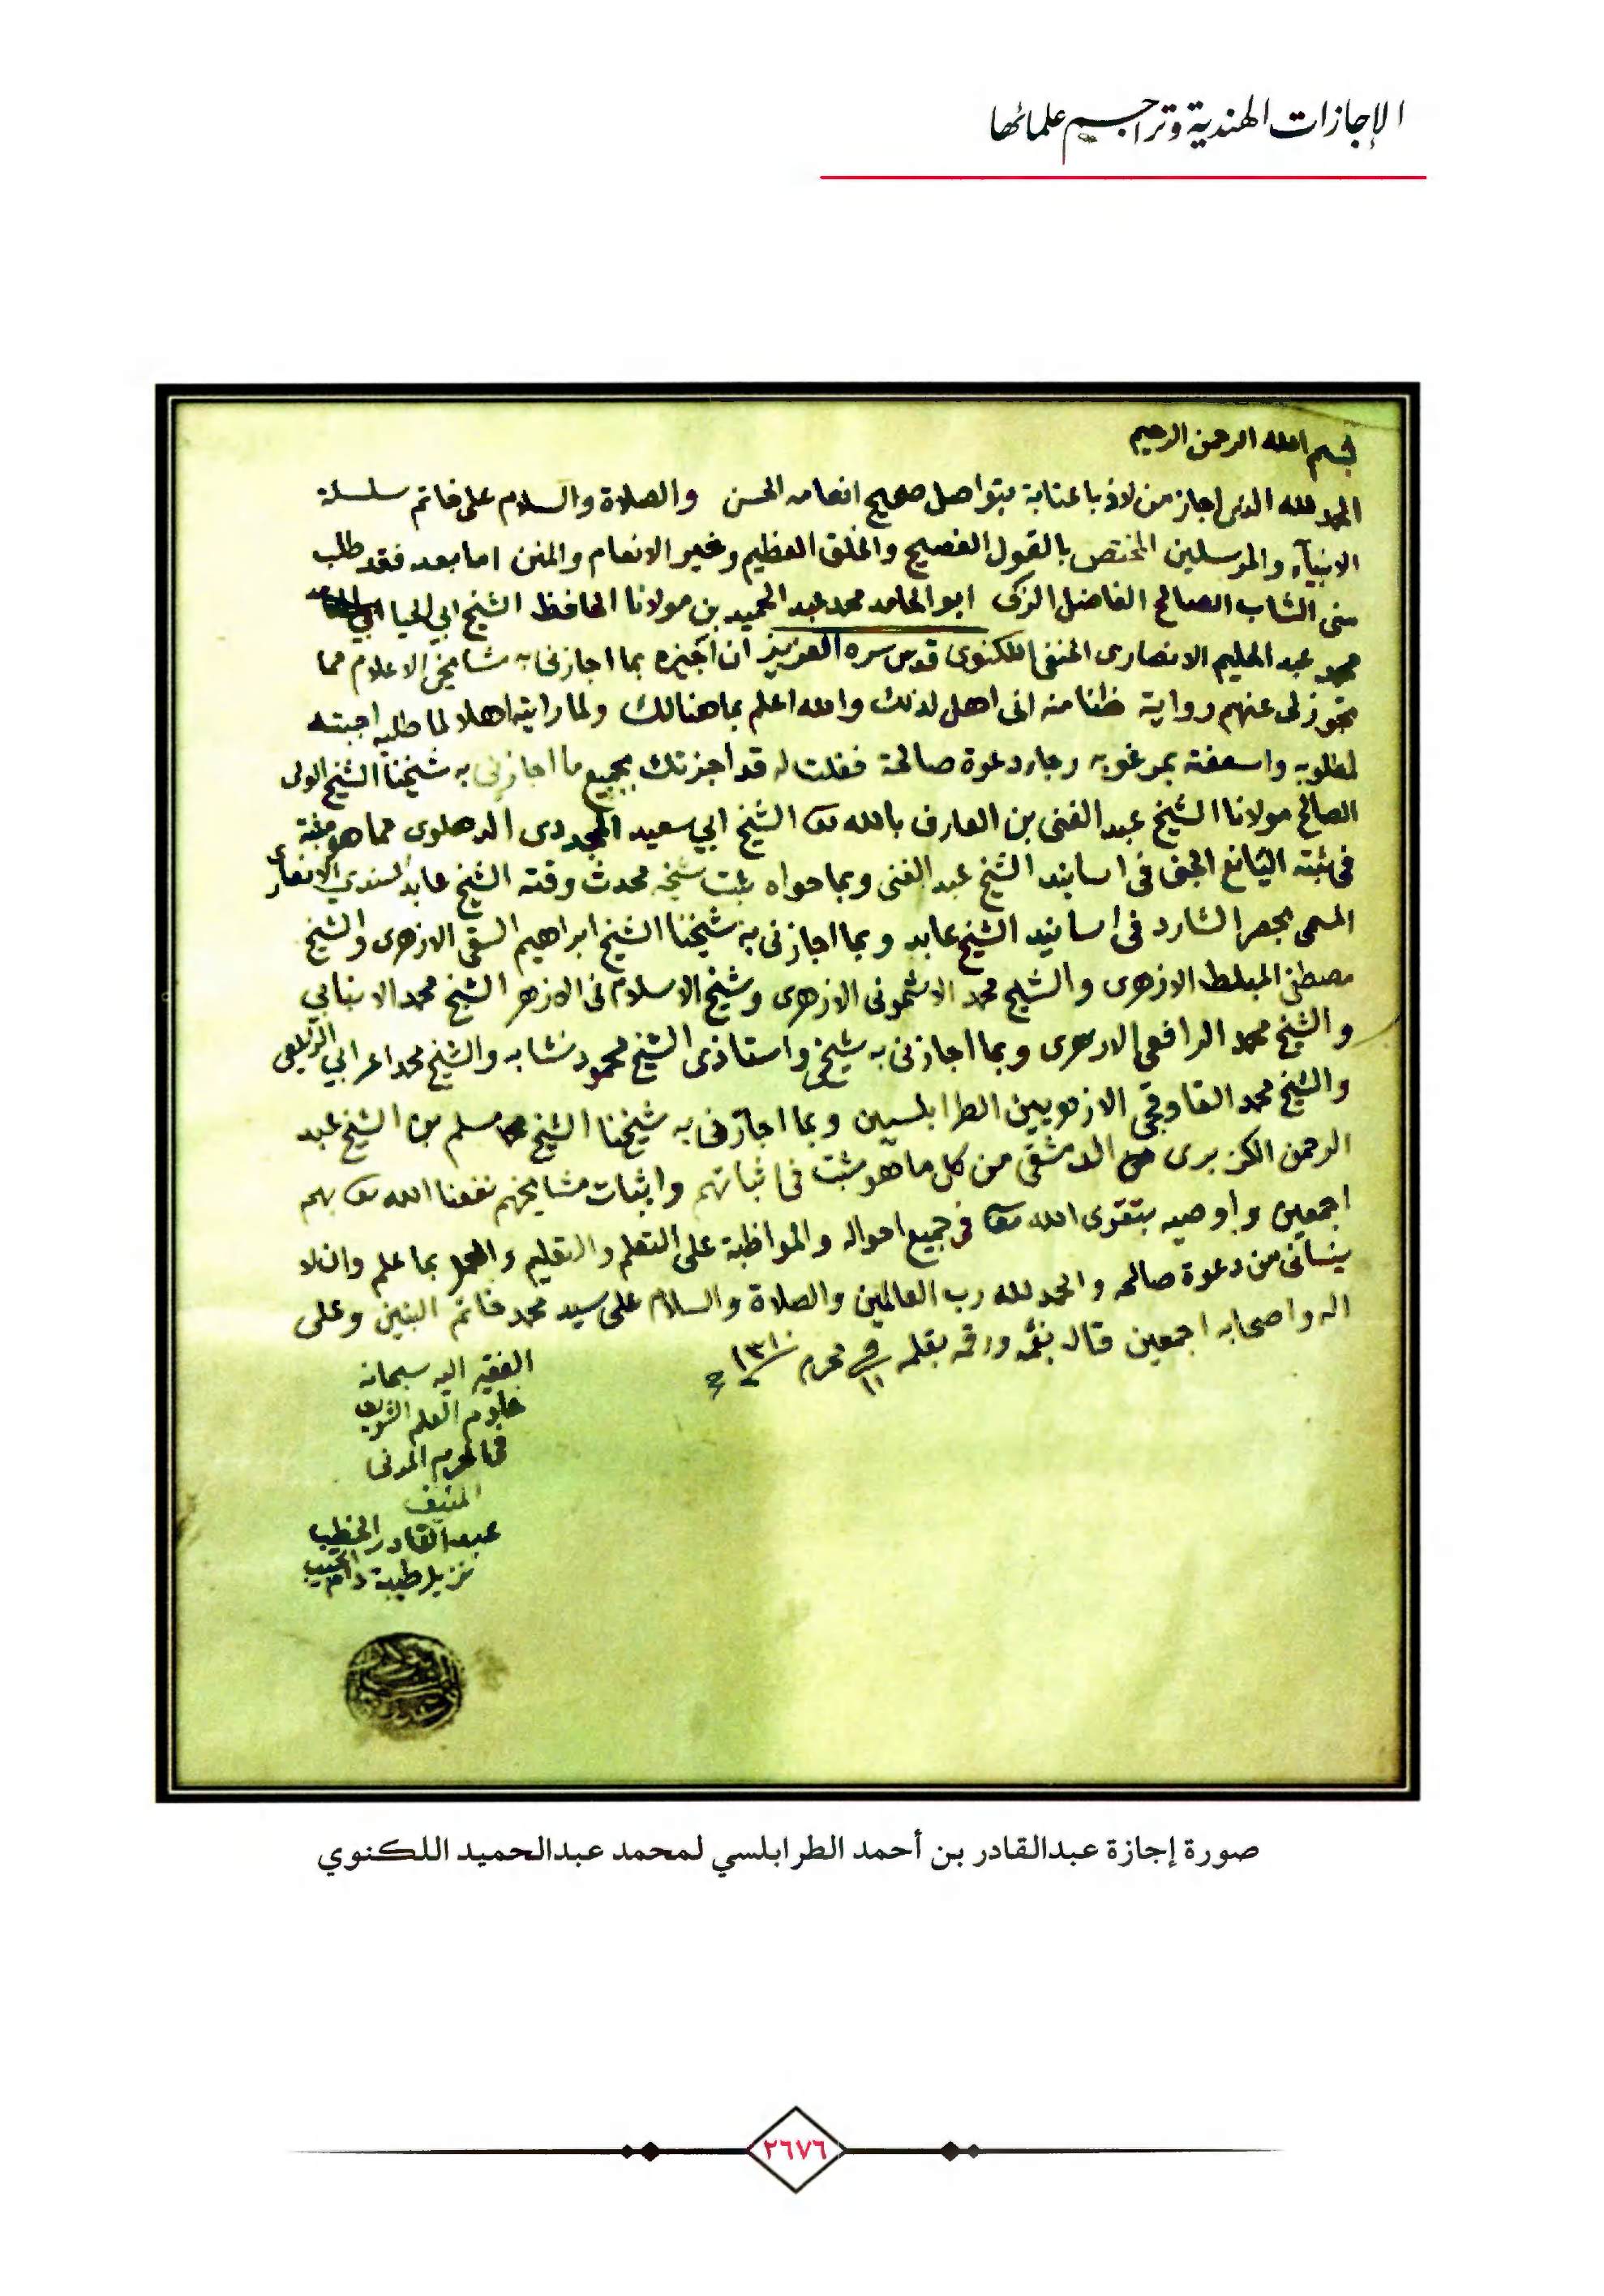 الإجازات الهندية وتراجيم علمائها
بسم الله الرحمن الرحيم
الحمد لله الذى اجاز من لاذ باعتابه بتواصل صحيح انعامه الحسن والصلاة والسلام على خاتم سلسلة
الانبيآء والمرسلين المختص بالقول الفصيح والخلق العظيم وغير الانعام والمنن اما بعد فقد طلب
منى الشاب الصالح الفاضل الزكى ابو الحامد محمد عبد الحميد بن مولانا الحافظ الشيخ ابي الحيا
محمد عبد الحليم الانصارى الحنفى اللكنوى قدس سره العزيز ان اجيزه بما اجازنى به مشايخى الاعلام مما
تجوز لى عنهم رواية ظنا منه انى اهل لذلك والله اعلم بما هنالك ولما رايته اهلا لما طلبه اجبته
لمطلوبه واسعفته بمرغوبه رجاء دعوة صالحة فقلت له قد اجزتك بجميع ما اجازنى به شيخنا الشيخ الولى
الصالح مولانا الشيخ عبد الغنى بن العارف بالله تعا الشيخ ابي سعيد المجددى الدهلوى مما هو مثبة
فى ثبته اليانع الجنى فى اسانيد الشيخ عبد الغنى وبما حواه ثبت شيخه محدث وقته الشيخ عابد السندي الانصارى
المسمى بحصر الشارد فى اسانيد الشيخ عابد وبما اجازنى به شيخنا الشيخ ابراهيم السقى الازهرى والشيخ
مصطفى المبلط الازهرى والشيخ محمد الاشمونى الازهرى وشيخ الاسلام فى الازهر الشيخ محمد الانبابي
والشيخ محمد الرافعى الازهرى وبما اجازنى به شيخى واستاذى الشيخ محمود نشابه والشيخ محمد اعرابي الزيلعى
والشيخ محمد القاوقجى الازهريين الطرابلسيين وبما اجازنى به شيخنا الشيخ مسلم بن الشيخ عبد
الرحمن الكزبرى الدمشقى من كل ما هو مثبت فى اثباتهم واثبات مشايخهم نفعنا الله تعا بهم
اجمعين واوصيه بتقوى الله تعا فى جميع احواله والمواظبة على التعلم والتعليم والعمل بما علم وان لا
ينسانى من دعوة صالحه والحمد لله رب العالمين والصلاة والسلام على سيد محمد خاتم النبين وعلى
اله واصحابه اجمعين قاله بفمه ورقمه بقلمه فى ١١ محرم ١٣١٠
الفقير اليه سبحانه
خادم العلم الشريف
فى الحرم المدنى
المنيف
عبد القادر الخطيب
نزيل طيبة
صورة إجازة عبدالقادر بن أحمد الطرابلسي لمحمد عبدالحميد اللكنوي
٢٦٧٦